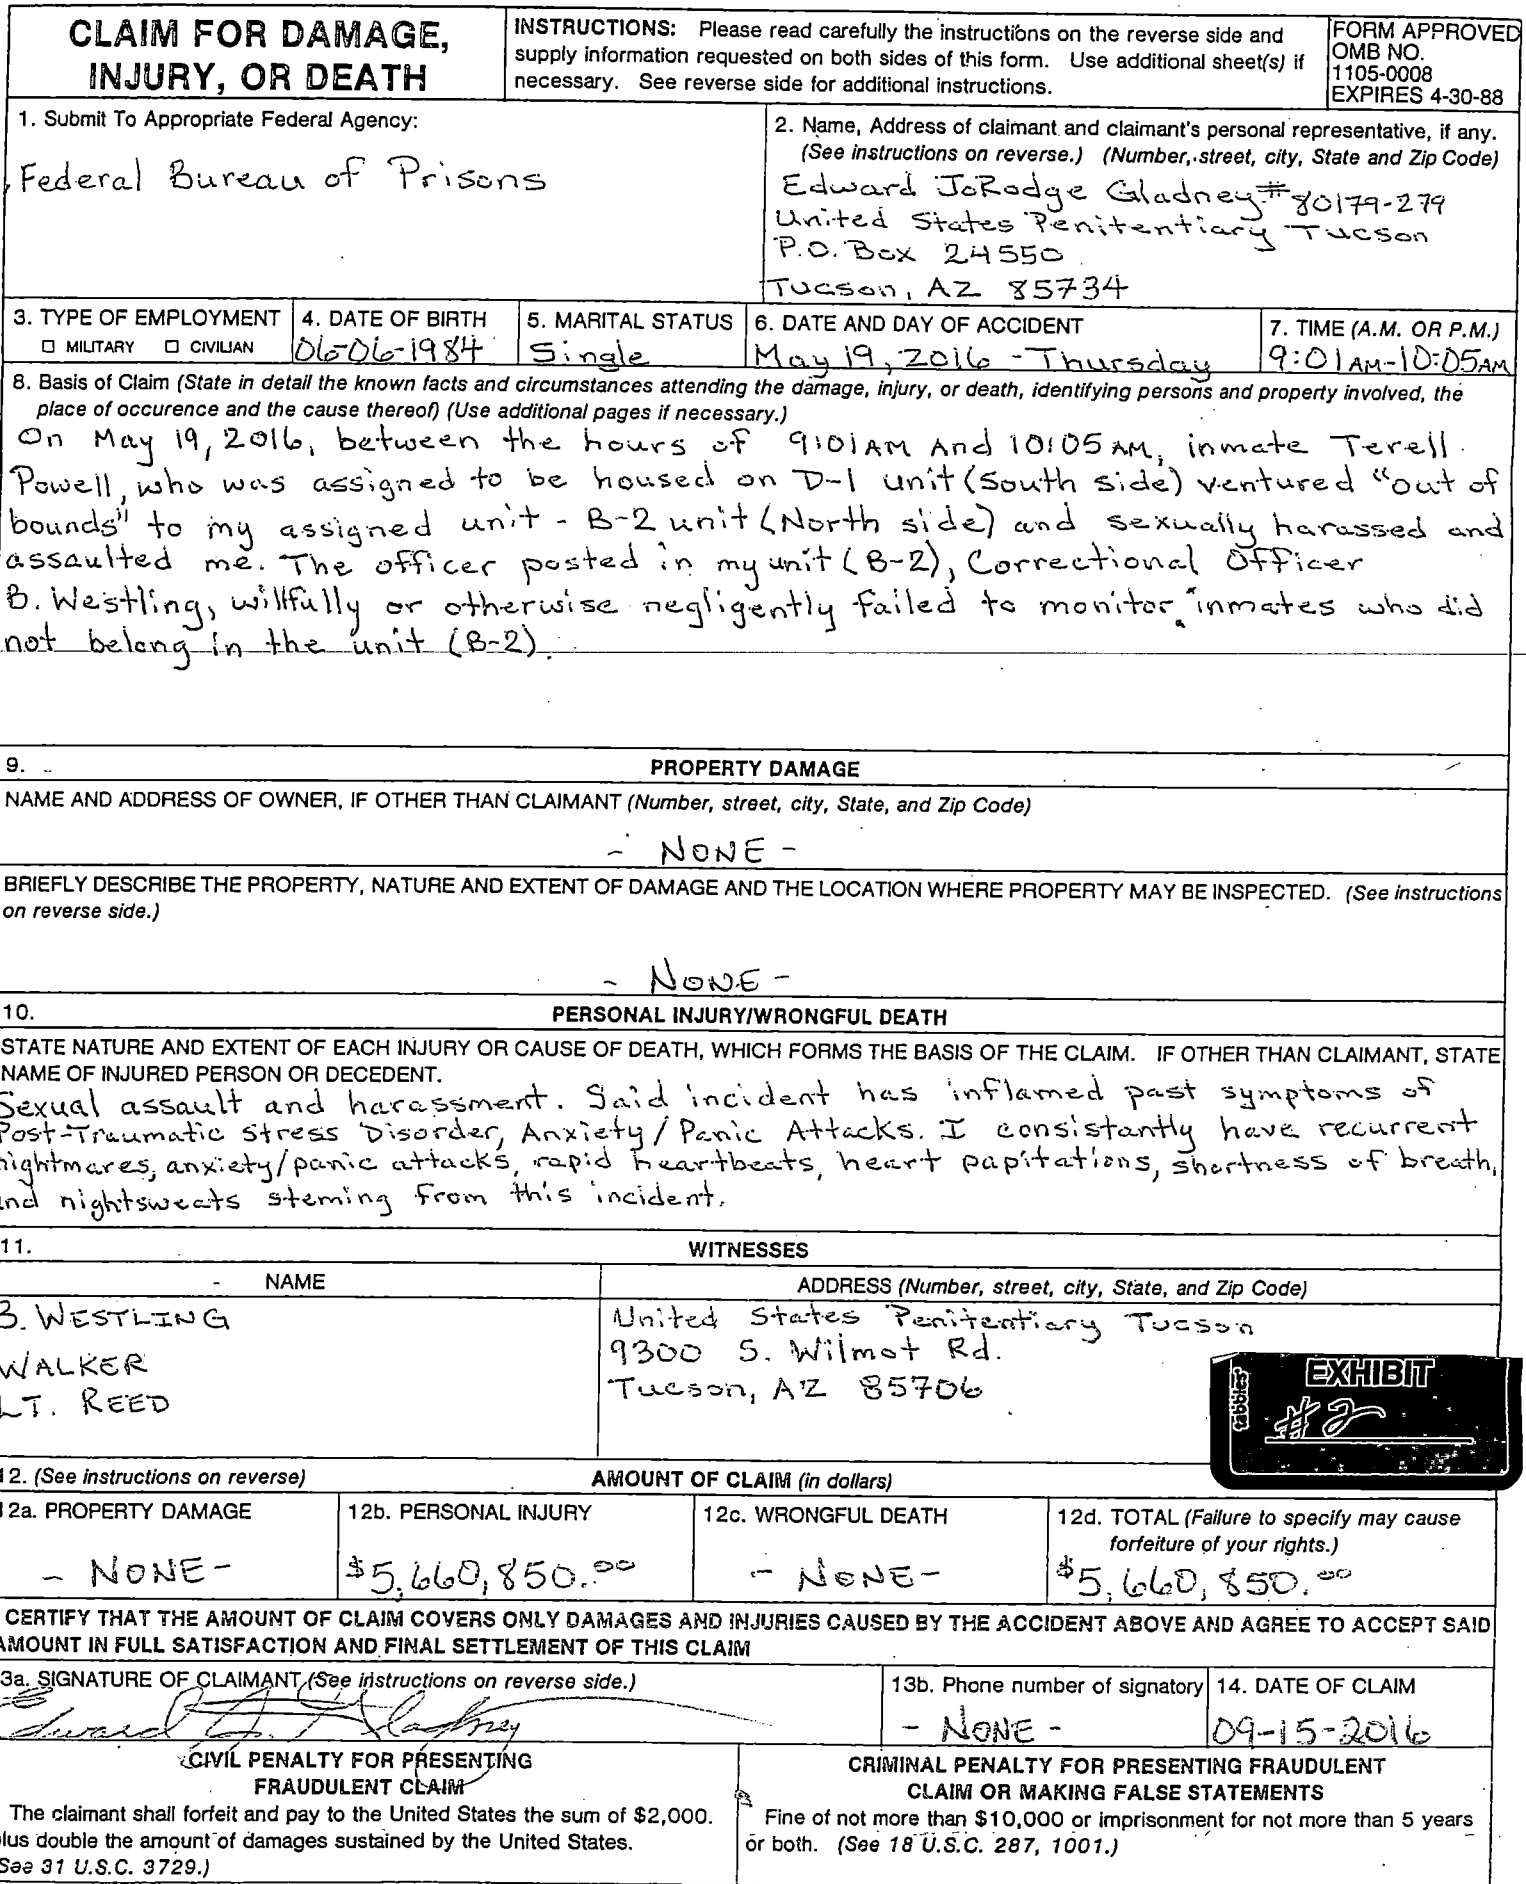 CLAIM FOR DAMAGE,
INJURY, OR DEATH
INSTRUCTIONS: Please read carefully the instructions on the reverse side and
supply information requested on both sides of this form. Use additional sheet(s) if
necessary. See reverse side for additional instructions.
FORM APPROVED
OMB NO.
1105-0008
EXPIRES 4-30-88
1. Submit To Appropriate Federal Agency:
Federal Bureau of Prisons
2. Name, Address of claimant and claimant's personal representative, if any.
(See instructions on reverse.) (Number, street, city, State and Zip Code)
Edward JoRodge Gladney #80179-279
United States Penitentiary Tucson
P.O. Box 24550
Tucson, AZ 85734
3. TYPE OF EMPLOYMENT
☐ MILITARY ☐ CIVILIAN
4. DATE OF BIRTH
06-06-1984
5. MARITAL STATUS
Single
6. DATE AND DAY OF ACCIDENT
May 19, 2016 - Thursday
7. TIME (A.M. OR P.M.)
9:01 AM-10:05 AM
8. Basis of Claim (State in detail the known facts and circumstances attending the damage, injury, or death, identifying persons and property involved, the
place of occurence and the cause thereof) (Use additional pages if necessary.)
On May 19, 2016, between the hours of 9:01 AM And 10:05 AM, inmate Terell
Powell, who was assigned to be housed on D-1 unit (South side) ventured "out of
bounds" to my assigned unit - B-2 unit (North side) and sexually harassed and
assaulted me. The officer posted in my unit (B-2), Correctional Officer
B. Westling, willfully or otherwise negligently failed to monitor inmates who did
not belong in the unit (B-2).
9. PROPERTY DAMAGE
NAME AND ADDRESS OF OWNER, IF OTHER THAN CLAIMANT (Number, street, city, State, and Zip Code)
- NONE -
BRIEFLY DESCRIBE THE PROPERTY, NATURE AND EXTENT OF DAMAGE AND THE LOCATION WHERE PROPERTY MAY BE INSPECTED. (See instructions
on reverse side.)
- NONE -
10. PERSONAL INJURY/WRONGFUL DEATH
STATE NATURE AND EXTENT OF EACH INJURY OR CAUSE OF DEATH, WHICH FORMS THE BASIS OF THE CLAIM. IF OTHER THAN CLAIMANT, STATE
NAME OF INJURED PERSON OR DECEDENT.
Sexual assault and harassment. Said incident has inflamed past symptoms of
Post-Traumatic Stress Disorder, Anxiety/Panic Attacks. I consistantly have recurrent
nightmares, anxiety/panic attacks, rapid heartbeats, heart papitations, shortness of breath,
and nightsweats steming from this incident.
11. WITNESSES
NAME
ADDRESS (Number, street, city, State, and Zip Code)
B. WESTLING
WALKER
LT. REED
United States Penitentiary Tucson
9300 S. Wilmot Rd.
Tucson, AZ 85706
tabbies
EXHIBIT
#2
12. (See instructions on reverse) AMOUNT OF CLAIM (in dollars)
12a. PROPERTY DAMAGE
- NONE -
12b. PERSONAL INJURY
$5,660,850.00
12c. WRONGFUL DEATH
- NONE -
12d. TOTAL (Failure to specify may cause
forfeiture of your rights.)
$5,660,850.00
CERTIFY THAT THE AMOUNT OF CLAIM COVERS ONLY DAMAGES AND INJURIES CAUSED BY THE ACCIDENT ABOVE AND AGREE TO ACCEPT SAID
AMOUNT IN FULL SATISFACTION AND FINAL SETTLEMENT OF THIS CLAIM
3a. SIGNATURE OF CLAIMANT (See instructions on reverse side.)
Edward J. Gladney
13b. Phone number of signatory
- NONE -
14. DATE OF CLAIM
09-15-2016
CIVIL PENALTY FOR PRESENTING
FRAUDULENT CLAIM
The claimant shall forfeit and pay to the United States the sum of $2,000.
plus double the amount of damages sustained by the United States.
(See 31 U.S.C. 3729.)
CRIMINAL PENALTY FOR PRESENTING FRAUDULENT
CLAIM OR MAKING FALSE STATEMENTS
Fine of not more than $10,000 or imprisonment for not more than 5 years
or both. (See 18 U.S.C. 287, 1001.)